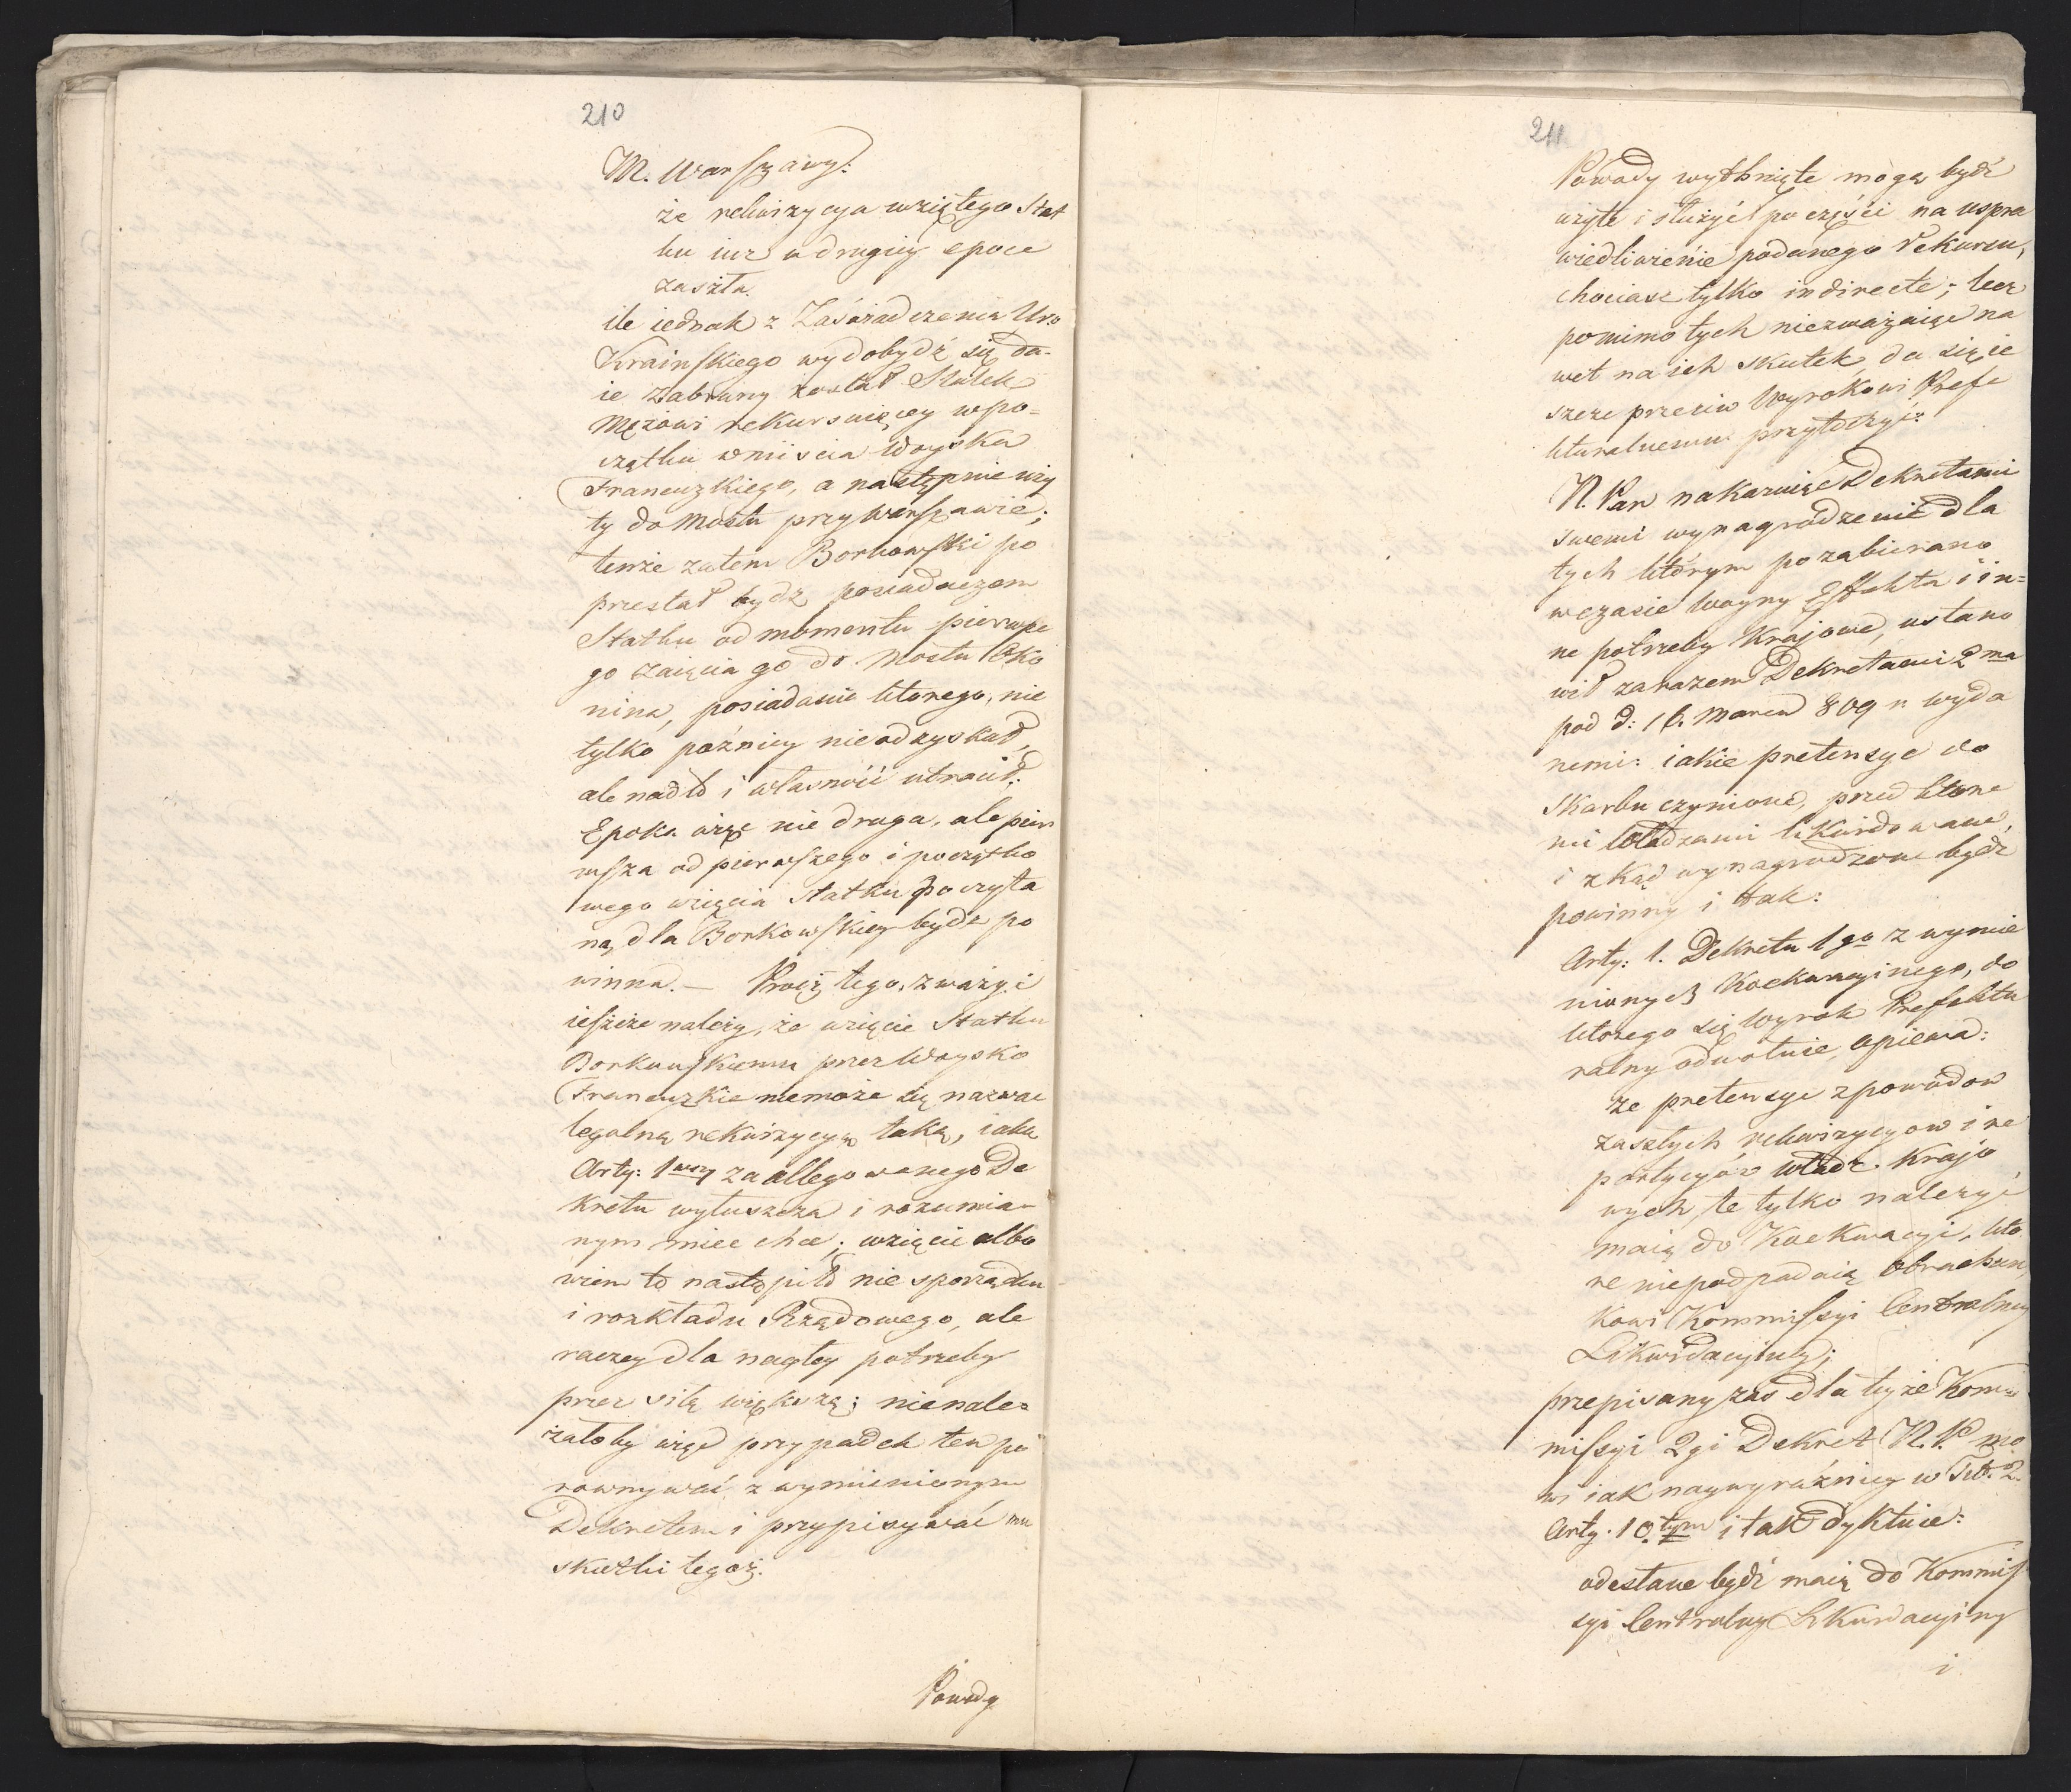 210
M. Warszawy:
że rekwizycyja wziętego Stat
ku iuż w drugiey epoce
zaszła.
ile iednak z Zaświadczenia Uro
Krainskiego wydobydź się da-
ie zabrany został Statek
Mężowi rekursuięcey wpo-
czątku wniiscia Woyska
Francuzkiego, a następnie uży
ty do Mostu przy Warszawie;
tenże zatem Borkowski po
przestał bydź posiadaczem
Statku od momentu pierwsze
go zaięcia go do Mostu Oko
nina, posiadanie ktorego, nie
tylko poźniey nieodzyskał,
ale nadto i własność utracił;
Epoka więc nie druga, ale pier
wsza od pierwszego i początko
wego wzięcia Statku poczyta
ną dla Borkowskiey bydź po
winna. — Prócz tego, zważyć
ieszcze należy, że wzięcie Statku
Borkowskiemu przez Woysko
Francuzkie niemoże się nazwac
legalną rekwizycyą taką, iaką
Arty: 1wszy zaallegowanego De
kretu wytuszcza i rozumia-
nym miec chce; wzięcie albo
wiem to nastąpiło nie z porządku
i rozkładu Rządowego, ale
raczey dla nagłey potrzeby
przez siłę większą; nienale=
żałoby więc przypadek ten po
rownywać z wymienionym
Dekretem i przypisywać mu
skutki tegoż.
Powody
211
Powody wytknięte mogą bydź
użyte i służyć po części na uspra
wiedliwienie podanego Rekursu,
chociasz tylko indirecte; lecz
pomimo tych niezważaiąc na
wet na ich skutek, da się ie
szcze przeciw Wyrokowi Prefe
kturalnemu przytoczyć:
N. Pan nakazuiąc Dekretami
swemi wynagrodzenie dla
tych którym pozabierano
wczasie Woyny Effekta i in=
ne potrzeby Krajowe, ustano
wił zarazem Dekretami 2ma
pod d: 16. Marca 809 r. wyda
nemi: iakie pretensye do
Skarbu czynione, przed ktore
mi Władzami likwidowane,
i zkąd wynagrodzone bydź
powinny i tak:
Arty: 1. Dekretu 1go z wymie
nionych Koekwacyinego, do
ktorego się Wyrok Prefektu
ralny odwołuie, opiewa:
że pretensye z powodow
zaszłych rekwizycyow i re
partycyów Władz Krajo
wych, te tylko należyć
maią do Koekwacyi, kto
re niepodpadaią obrachun,
kowi Kommissyi Centralney
Likwidacyiney;
przepisany zaś dla teyże Kom
missyi 2gi Dekret N. P. mo
wi iak naywyraźniey w Tit. 2.
Arty. 10.tym i tak dyktuie:
odesłane bydź maią do Kommis
syi Centralney Likwidacyiney
i